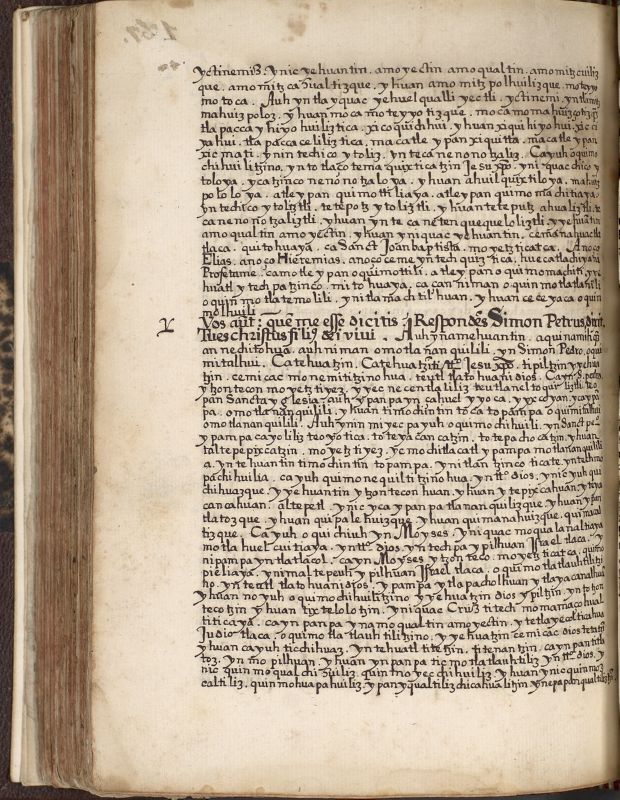 yctinemiz. ynic yehuantin. amo yectin amo qualtin. amo mitz cuiliz
que. amo mitz cahualtizque. yhuan amo mitz polhuilizque. mo teyyo
mo toca. Auh yn tla yquac yehuel qualli yectli. yctinemi. yntla mitz
mahuizpoloz. yhuan mo ca mo teyyotizque. mo ca mo mahuizzotizque
tlapacca yhiyohuiliztica. xicoquichihui. yhuan xiquihiyohui. xicci
yahui. tlapaccaceliliztica. macatle ypan xiquitta. macatle ypan
xicmati. yn intechicoytoliz. yn tecanenonotzaliz. Ca yuh oquimo
chihuilitzino. yn totlaçotemaquixticatzin Jesu xpo. yniquac chico y
toloya. ycatzinco nenonotzaloya. yhuan ahuilquixtiloya. mahuiz
pololoya. atle ypan quimottiliaya. atle ypan quimomachitiaya.
yn techicoytoliztli. tetepotzytoliztli. yhuan teteputz ahualiztli. te
ca nenonotzaliztli. yhuan yn teca netenquequeloliztli. yyehuantin
amo qualtin amo yectin. yhuan yniquac yehuantin. cemanahuactla
tlaca. quitohuaya. ca Sanct Joan baptista. moyetzticatca. Anoço
Elias. anoço Hieremias. anoço ceme yntech quiztica. huecatlachiyani
Profetame. camo tle ypan oquimottili. atle ypan oquimomachiti. yye
huatl ytechpatzinco. mitohuaya. ca çan niman oquinmotlatlanili
oquinmotlatemolili. ynitlamachtilhuan. yhuan ceceyaca oquin
molhuili
Vos aut: quem me esse dicitis? Respondens Simon Petrus, dixit.
Tu es christus filius dei vivi. Auh yn amehuantin. aquin amihqui
annechitohua. auh niman omotlananquilili. yn Simon Pedro, oqui
mitalhui. Ca tehuatzin. Ca tehuatzin tto. Jesu xpo. tipiltzin yyehua
tzin. cemicac monemitizinohua. teutl tlatohuani dios.
yhontecon moyetztiyez. yyecnecentlaliliz teutlaneltoquiliztli.
pan Sancta yglesia. auh ypan pa yn cahuel yyoca. yyxcoyan. yca ypa
pa. omotlananquilili. yhuan timochintin totca topampa oquimitalhui
omotlananquilili. Auh ynin miyecpa yuh oquimochihuili. yn Sanct po
ypampa cayoliliz teoyotica. toteyacancatzin. totepachocatzin. yhuan
taltepepixcatzin. moyetztiyez. yc mochitlacatl ypampa motlananquilili
a. yn tehuantin timochintin topampa. ynitlantzinco ticate. yntechmo
pachihuilia. ca yuh quimonequiltitzinohua. yn tto. dios. ynic yuh qui
chihuazque. yyehuantin ytzonteconhuan. yhuan ytepixcahuan. ytiya
cancahuan. altepetl. ynic yca ypanpa tlananquilizque. yhuan ypan
tlatozque. yhuan quipalehuizque yhuan quimanahuizque. quimacal
tizque. Ca yuh oquichiuh yn Moyses. yniquac moqualanaltiaya
motlahuelcuitiaya. yn tto. dios. yntechpa ypilhuan Israel tlaca. y
nipampa yntlatlacol. ca yn Moyses ytzonteco moyetzticatca. quimo
pieliaya. ynimaltepeuh ypilhuan Israel tlaca. oquimotlatlauhtilitzi
no. yn teutl tlatohuani dios. ypampa ytlapacholhuan ytlayacanalhuan
yhuan no yuh oquimochihuilitzino yyehuatzin dios ypiltzin. yntotzon
tecotzin yhuan tixtelolotzin. yniquac Cruz titech momamaçohual
titicaya. ca ynpanpa ynamo qualtin amo yectin. ytetlayecolticahua
Judiotlaca. oquimotlatlauhtilitzino. yyehuatzin cemicac dios tetatzin
yhuan ca yuh ticchihuaz. yn tehuatl titetzin. titenantzin. ca ynpan titla
toz. yn mopilhuan. yhuan ynpanpa ticmotlatlauhtiliz yn tto. dios. y
nic quinmoqualchihuiliz. quinmoyecchihuiliz yhuan ynic quinmoz
caltiliz. quinmohuapahuiliz. ypan yqualtiliz chicahualitzin